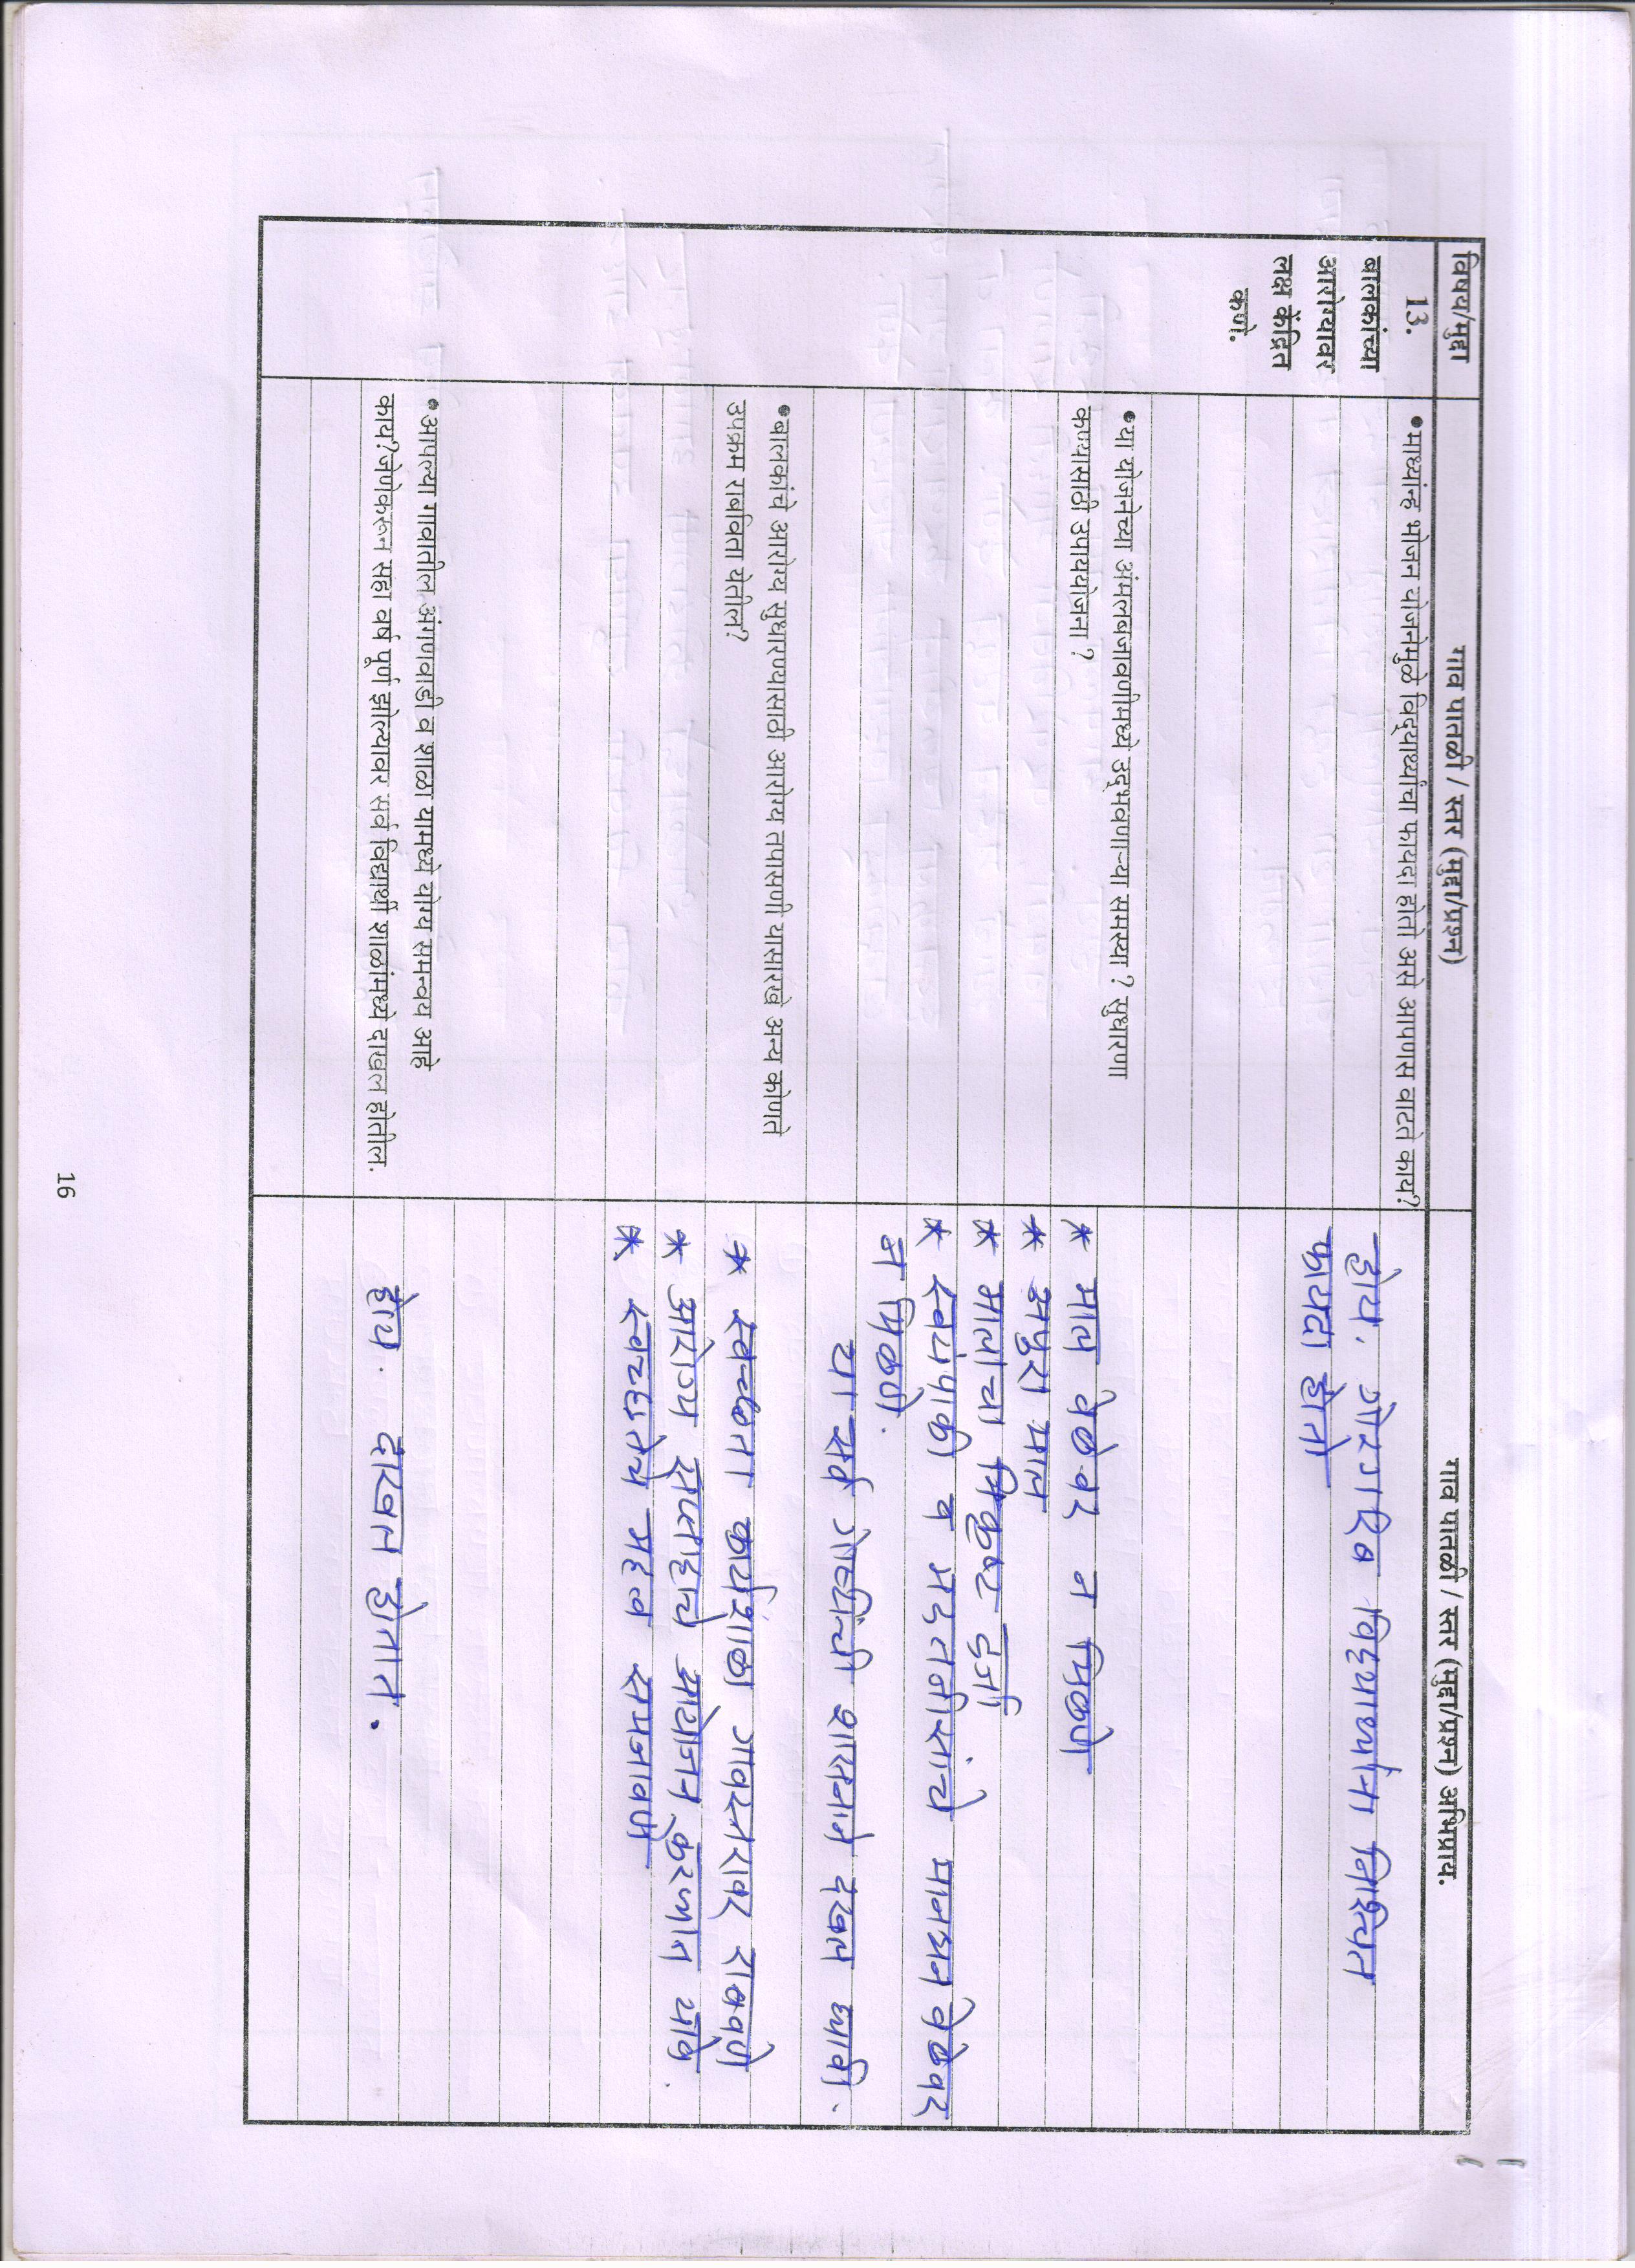 विषय/मुद्दा
गाव पातळी / स्तर (मुद्दा/प्रश्न)
गाव पातळी / स्तर (मुद्दा/प्रश्न) अभिप्राय.
13.
बालकांच्या
आरोग्यावर
लक्ष केंद्रित
कणे.
•माध्यांन्ह भोजन योजनेमुळे विद्यार्थ्यांचा फायदा होतो असे आपणास वाटते काय?
होय. गोरगरिब विद्यार्थ्यांना निश्चित
फायदा होतो
•या योजनेच्या अंमलबजावणीमध्ये उद्भवणाऱ्या समस्या? सुधारणा
कण्यासाठी उपाययोजना?
* माल वेळेवर न मिळणे
* अपुरा माल
* मालाचा निकृष्ट दर्जा
* स्वयंपाकी व मदतनीसांचे मानधन वेळेवर
न मिळणे.
या सर्व गोष्टींची शासनाने दखल घ्यावी.
•बालकांचे आरोग्य सुधारण्यासाठी आरोग्य तपासणी यासारखे अन्य कोणते
उपक्रम राबविता येतील?
* स्वच्छता कार्यशाळा गावस्तरावर राबवणे
* आरोग्य सप्ताहाचे आयोजन करण्यात यावे.
* स्वच्छतेचे महत्व समजावणे
•आपल्या गावातील अंगणवाडी व शाळा यामध्ये योग्य समन्वय आहे
काय?जेणेकरून सहा वर्ष पूर्ण झोल्यावर सर्व विद्यार्थी शाळांमध्ये दाखल होतील.
होय. दाखल होतात.
16